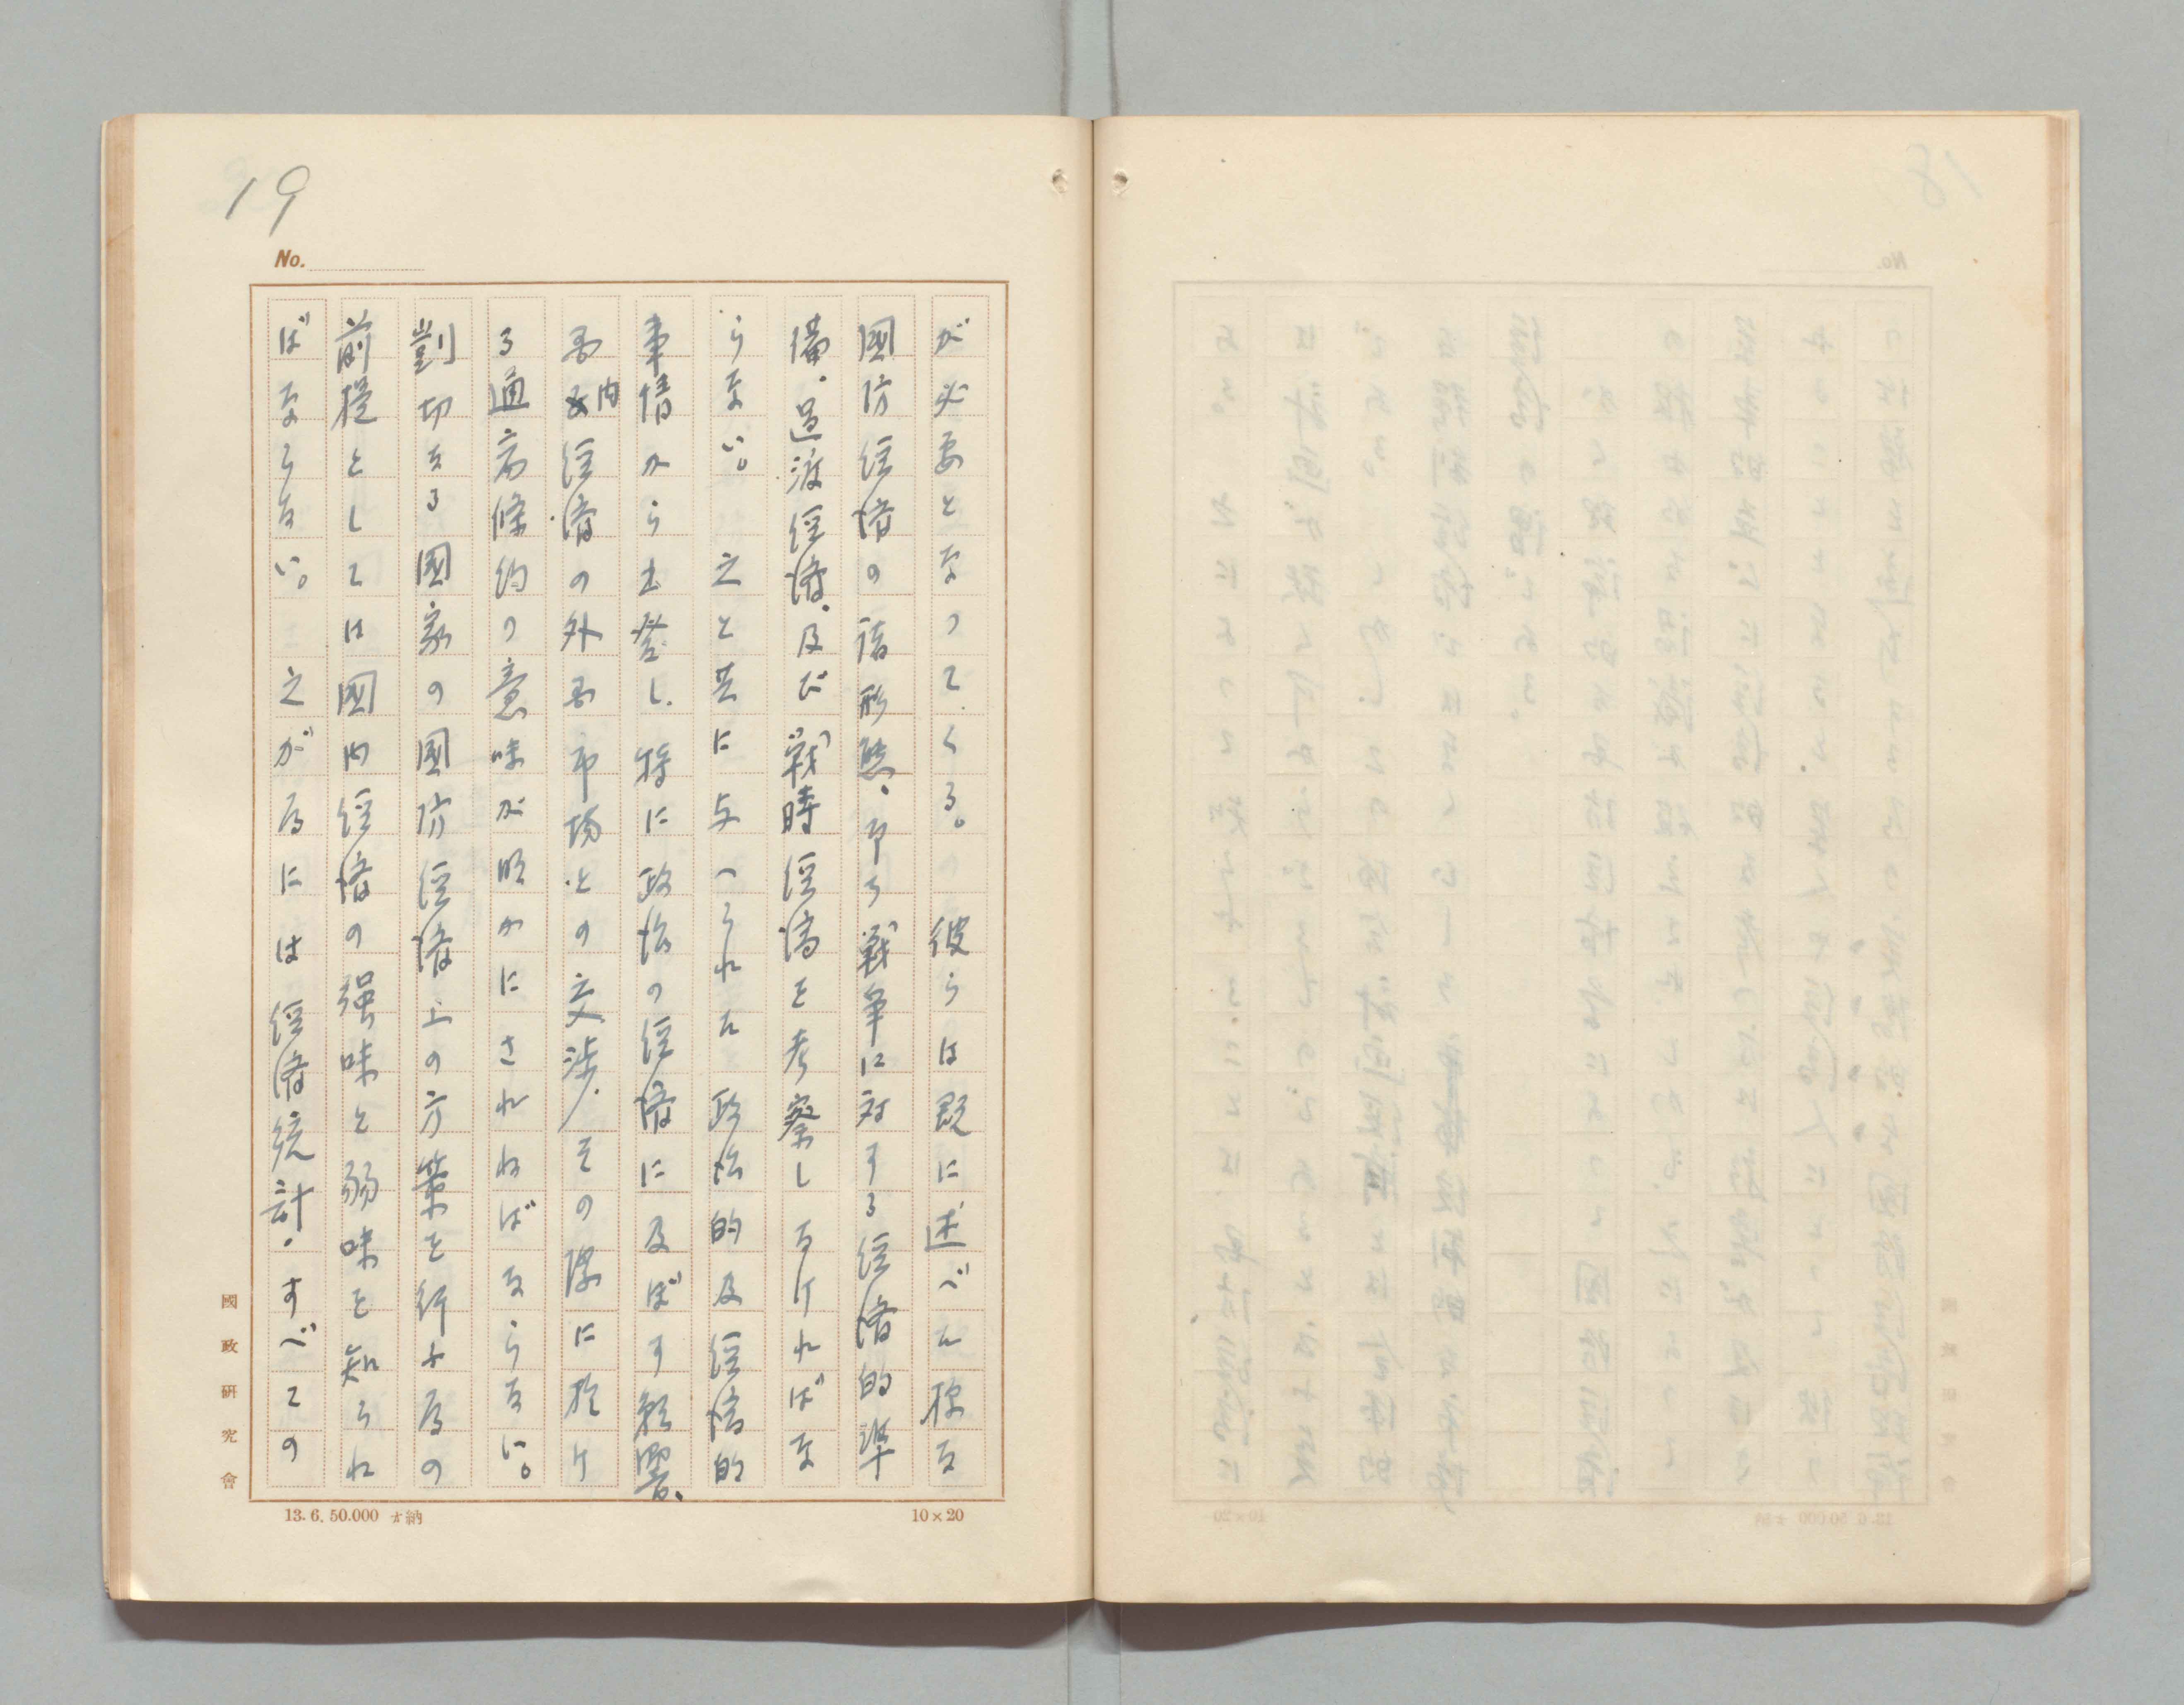 19
No.
が必要となつてくる。　彼らは既に述べた様な
國防経済の諸形態、即ち戦争に対する経済的準
備、過渡経済、及び戦時経済を考察しなければな
らない。　之と共に与へられた政治的及経済的
事情から出発し、特に政治の経済に及ぼす影響、
内経済の外国市場との交渉、その際に於け
る通商條約の意味が明かにされねばならない。
剴切なる國家の國防経済上の方策を行ふ為の
前提としては國内経済の强味と弱味を知られ
ばならない。　之が為には経済統計、すべての
國政研究會
13. 6. 50.000 納
10×20